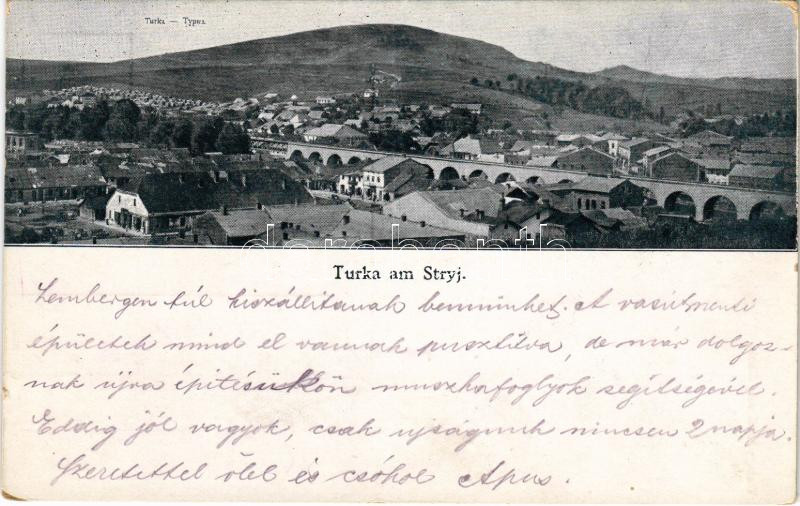 Turka — Турка.
darabanth
Turka am Stryj.
Lembergen túl kiszállitanak bennünket. A vasútmenti
épületek mind el vannak pusztítva, de már dolgoz-
nak újra épitésükön muszkafoglyok segítségével.
Eddig jól vagyok, csak ujságunk nincsen 2 napja.
Szeretettel ölel és csókol Apus.